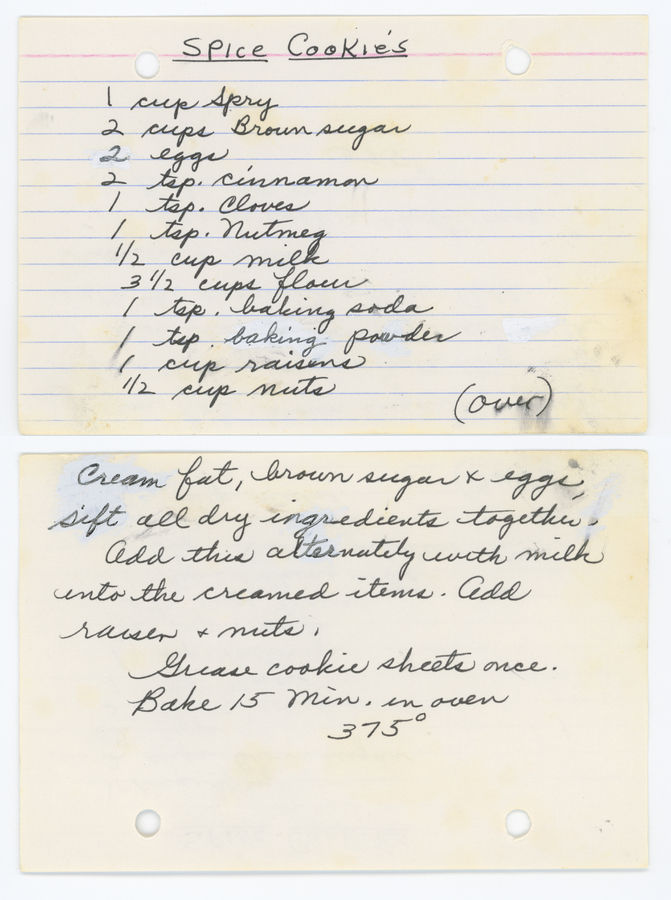 Spice Cookie's
1 cup Spry
2 cups Brown sugar
2 eggs
2 tsp. cinnamon
1 tsp. Cloves
1 tsp. Nutmeg
1/2 cup milk
3 1/2 cups flour
1 tsp. baking soda
1 tsp. baking powder
1 cup raisens
1/2 cup nuts
(over)
Cream fat, brown sugar & eggs,
sift all dry ingredients together.
Add this alternately with milk
into the creamed items. Add
raisen + nuts.
Grease cookie sheets once.
Bake 15 Min. in oven
375°